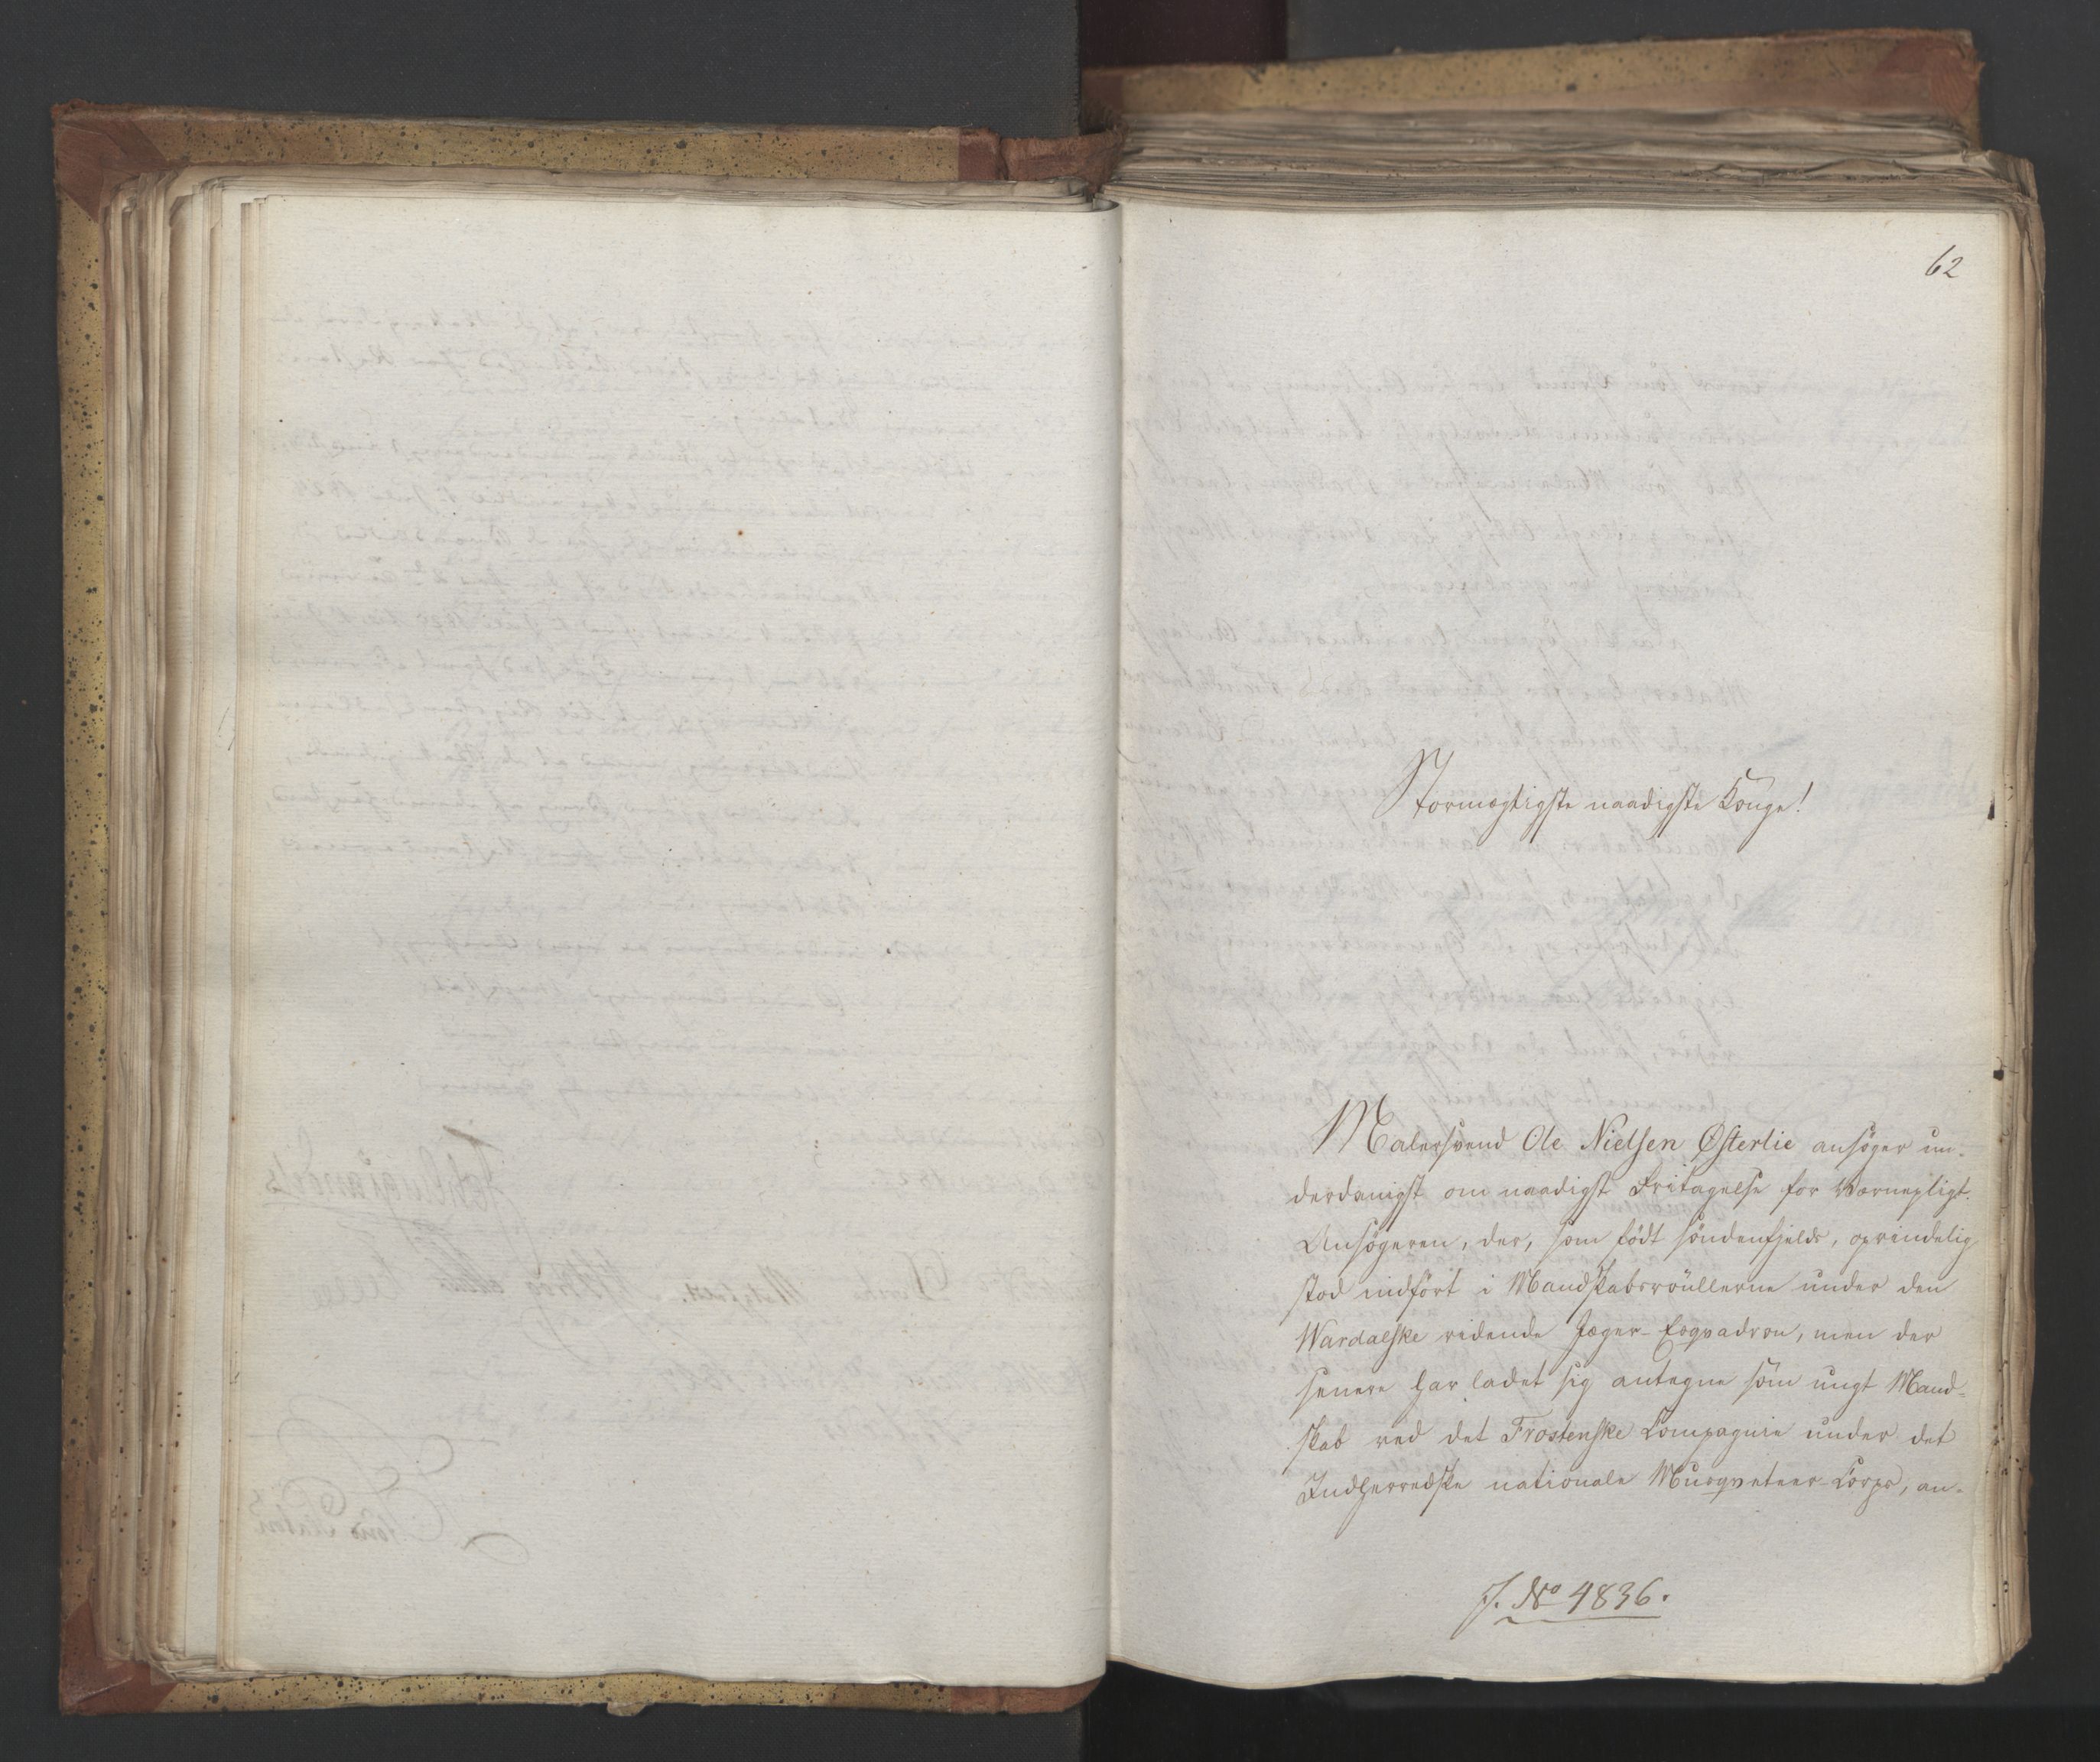 62
Stormægtigste naadigste Konge!
Malersvend Ole Nielsen Østerlie ansøger un-
derdanigst om naadigst Fritagelse for Værnepligt.
Ansøgeren, der, som født søndenfjelds, oprindelig
stod indført i Mandskabsrullerne under den
Wardalske ridende Jæger-Esqvadron, men der
senere har ladet sig antegne som ungt Mand-
skab ved det Frostenske Compagnie under det
Indherredske nationale Musqveteer-Corps, an-
J. No 4836.